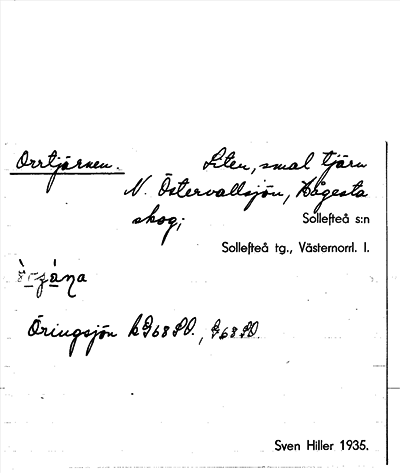 Orrtjärnen. Liten, smal tjärn
N. Östervallsjön, Hågesta
skog; Sollefteå s:n
Sollefteå tg., Västernorrl. l.
Öringsjön
Sven Hiller 1935.